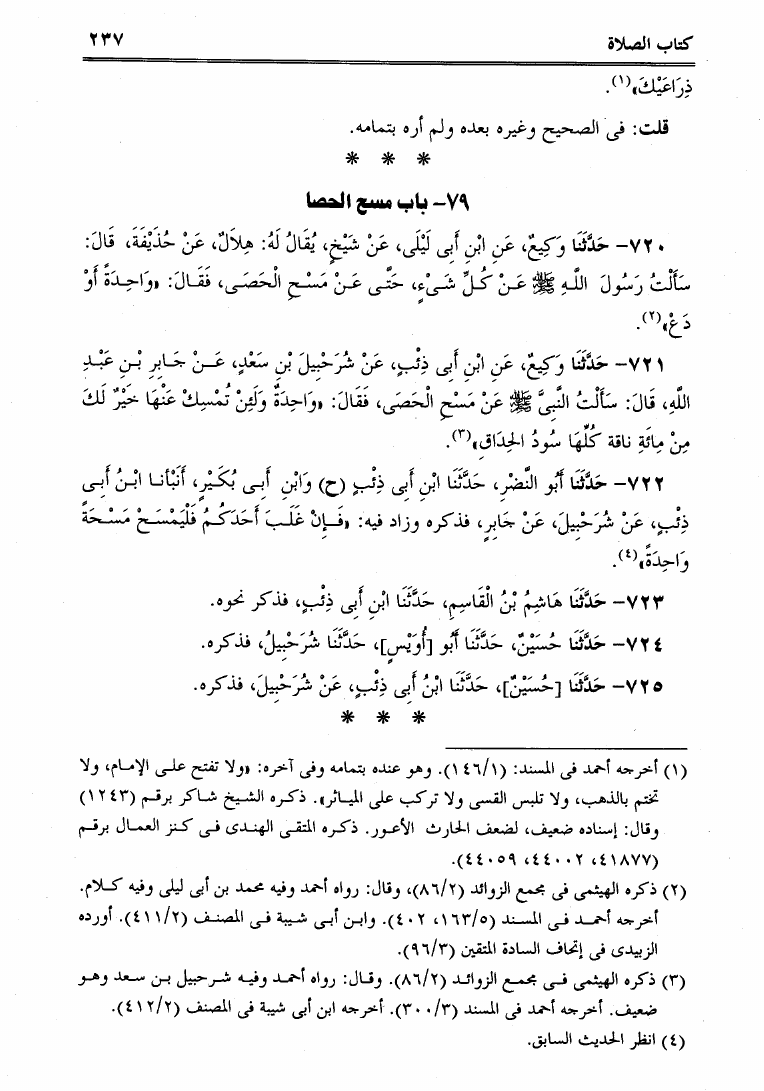 كتاب الصلاة ٢٣٧
ذِرَاعَيْكَ»(١).
قلت: فى الصحيح وغيره بعده ولم أره بتمامه.
* * *
٧٩- باب مسح الحصا
٧٢٠- حَدَّثَنَا وَكِيعٌ، عَنِ ابْنِ أَبى لَيْلَى، عَنْ شَيْخٍ، يُقَالُ لَهُ: هِلاَلٌ، عَنْ حُذَيْفَةَ، قَالَ:
سَأَلْتُ رَسُولَ اللَّهِ ﷺ عَنْ كُلِّ شَىْءٍ، حَتَّى عَنْ مَسْحِ الْحَصَى، فَقَالَ: «وَاحِدَةً أَوْ
دَعْ»(٢).
٧٢١- حَدَّثَنَا وَكِيعٌ، عَنِ ابْنِ أَبى ذِئْبٍ، عَنْ شُرَحْبِيلَ بْنِ سَعْدٍ، عَنْ جَابِرِ بْنِ عَبْدِ
اللَّهِ، قَالَ: سَأَلْتُ النَّبِىَّ ﷺ عَنْ مَسْحِ الْحَصَى، فَقَالَ: «وَاحِدَةٌ وَلَئِنْ تُمْسِكْ عَنْهَا خَيْرٌ لَكَ
مِنْ مِائَةِ ناقة كُلُّهَا سُودُ الحِدَاق»(٣).
٧٢٢- حَدَّثَنَا أَبُو النَّضْرِ، حَدَّثَنَا ابْنِ أَبى ذِئْبٍ (ح) وَابْنِ أَبى بُكَيْرٍ، أَنْبَأنا ابْنُ أَبى
ذِئْبٍ، عَنْ شُرَحْبِيلَ، عَنْ جَابِرٍ، فذكره وزاد فيه: «فَإِنْ غَلَبَ أَحَدَكُمُ فَلْيَمْسَحْ مَسْحَةً
وَاحِدَةً»(٤).
٧٢٣- حَدَّثَنَا هَاشِمُ بْنُ الْقَاسِمِ، حَدَّثَنَا ابْنِ أَبى ذِئْبٍ، فذكر نحوه.
٧٢٤- حَدَّثَنَا حُسَيْنٌ، حَدَّثَنَا أَبُو [أُوَيْسٍ]، حَدَّثَنَا شُرَحْبِيلُ، فذكره.
٧٢٥- حَدَّثَنَا [حُسَيْنٌ]، حَدَّثَنَا ابْنُ أَبى ذِئْبٍ، عَنْ شُرَحْبِيلَ، فذكره.
* * *
(١) أخرجه أحمد فى المسند: (١٤٦/١). وهو عنده بتمامه وفى آخره: «ولا تفتح على الإمام، ولا
تختم بالذهب، ولا تلبس القسى ولا تركب على المياثر». ذكره الشيخ شاكر برقم (١٢٤٣)
وقال: إسناده ضعيف، لضعف الحارث الأعور. ذكره المتقى الهندى فى كنز العمال برقم
(٤١٨٧٧، ٤٤٠٠٢، ٤٤٠٥٩).
(٢) ذكره الهيثمى فى مجمع الزوائد (٨٦/٢)، وقال: رواه أحمد وفيه محمد بن أبى ليلى وفيه كلام.
أخرجه أحمد فى المسند (١٦٣/٥، ٤٠٢). وابن أبى شيبة فى المصنف (٤١١/٢). أورده
الزبيدى فى إتحاف السادة المتقين (٩٦/٣).
(٣) ذكره الهيثمى فى مجمع الزوائد (٨٦/٢). وقال: رواه أحمد وفيه شرحبيل بن سعد وهو
ضعيف. أخرجه أحمد فى المسند (٣٠٠/٣). أخرجه ابن أبى شيبة فى المصنف (٤١٢/٢).
(٤) انظر الحديث السابق.